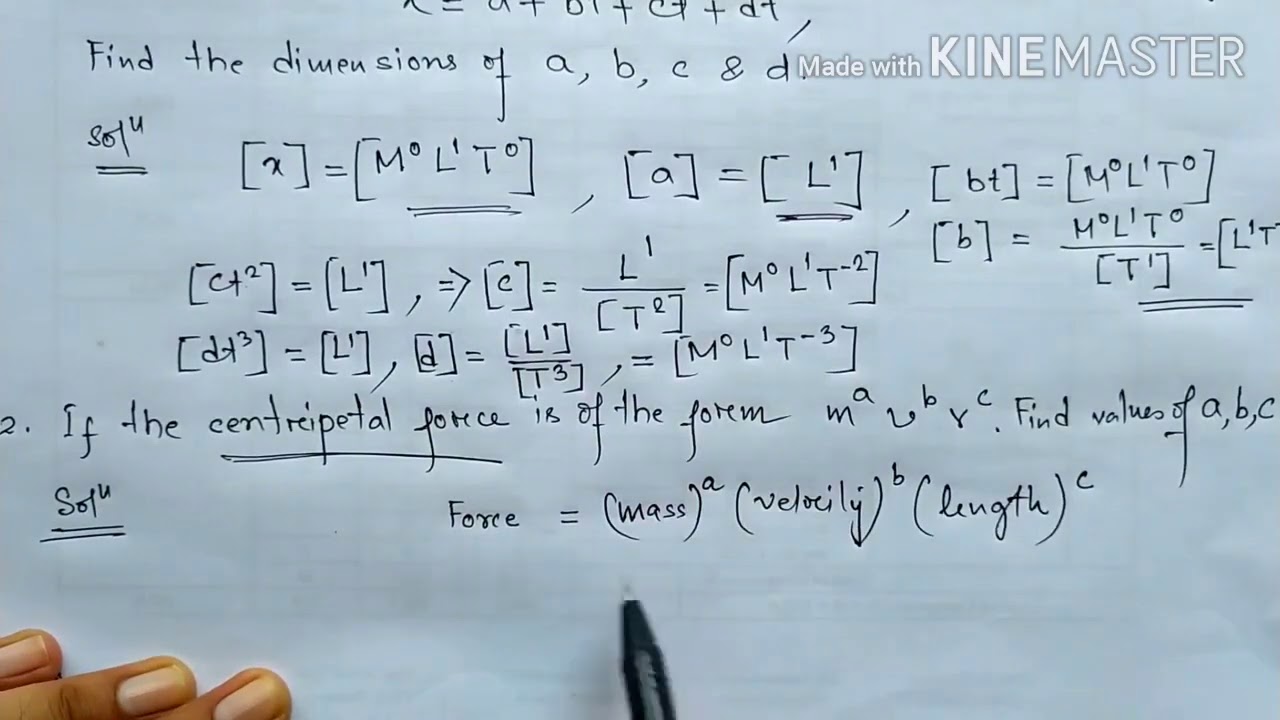 x = a + bt + ct + dt,
Find the dimensions of a, b, c & d.
Made with KINEMASTER
Solⁿ
[x] = [M⁰ L¹ T⁰], [a] = [L¹], [bt] = [M⁰L¹T⁰]
[b] = M⁰L¹T⁰/[T¹] = [L¹T
[ct²] = [L¹], => [c] = L¹/[T²] = [M⁰ L¹T⁻²]
[dt³] = [L¹], [d] = [L¹]/[T³], = [M⁰L¹T⁻³]
2. If the centripetal force is of the form mᵃ vᵇ rᶜ. Find values of a, b, c
Solⁿ
Force = (mass)ᵃ (velocity)ᵇ (length)ᶜ